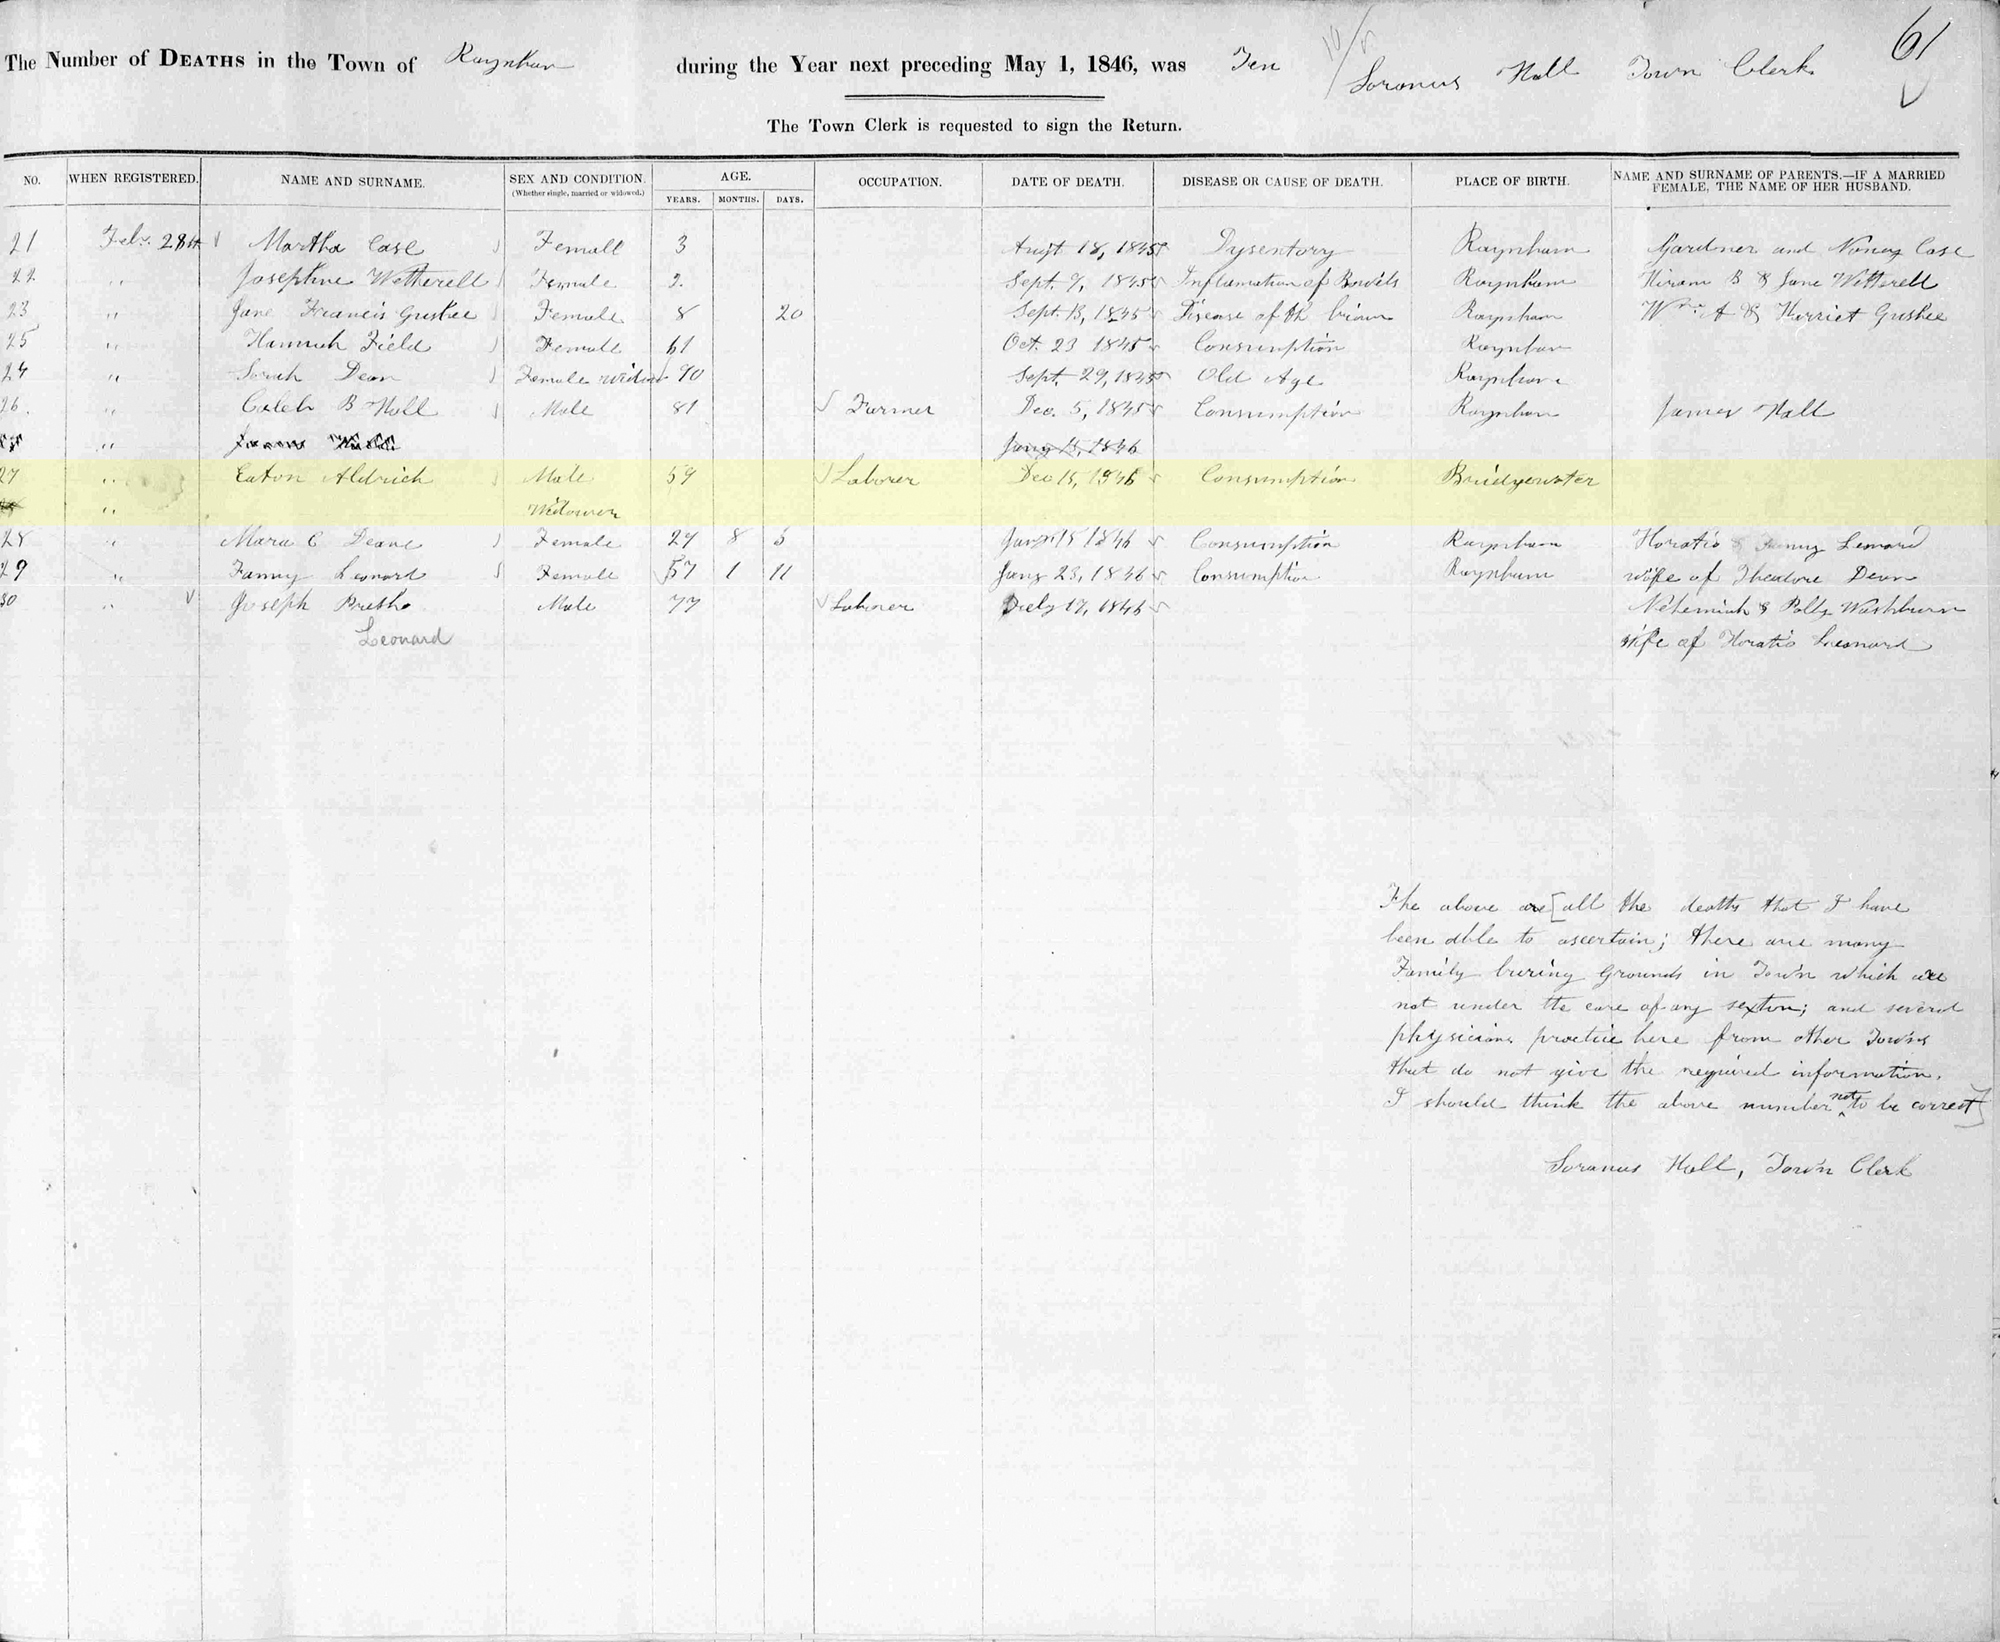 61
The Number of DEATHS in the Town of Raynham during the Year next preceding May 1, 1846, was Ten
10/
Soranus Hall Town Clerk
The Town Clerk is requested to sign the Return.
NO. WHEN REGISTERED. NAME AND SURNAME. SEX AND CONDITION. (Whether single, married or widowed.) AGE. YEARS. MONTHS. DAYS. OCCUPATION. DATE OF DEATH. DISEASE OR CAUSE OF DEATH. PLACE OF BIRTH. NAME AND SURNAME OF PARENTS.—IF A MARRIED FEMALE, THE NAME OF HER HUSBAND.
21 Feby. 28th Martha Case Female 3 Augt 18, 1845 Dysentory Raynham Gardner and Nancy Case
22 " Josephine Wetherell Female 2. Sept. 9, 1845 Inflamation of Bowels Raynham Hiram B & Jane Wetherell
23 " Jane Francis Gushee Female 8 20 Sept. 13, 1845 Disease of th brain Raynham Wm A & Harriet Gushee
25 " Hannah Field Female 61 Oct. 23 1845 Consumption Raynham
24 " Sarah Dean Female widow 90 Sept. 29, 1845 Old Age Raynham
26. " Caleb B Hall Male 81 Farmer Dec. 5, 1845 Consumption Raynham James Hall
" Jany 15, 1846
27 " Eaton Aldrich Male 59 Laborer Dec 15, 1846 Consumption Bridgewater
" Widower
28 " Mara C Deane Female 29 8 5 Jany 15 1846 Consumption Raynham Horatio & Fanny Leonard
29 " Fanny Leonard Female 57 1 11 Jany 23, 1846 Consumption Raynham wife of Theodore Dean
30 " Joseph Presho Male 77 Laborer July 17, 1846 Nehemiah & Polly Washburn
Leonard wife of Horatio Leonard
The above are [all the deaths that I have
been able to ascertain; there are many
Family buring Grounds in Town which are
not under the care of any sexton; and several
physicians practice here from other Towns
that do not give the required information.
I should think the above number not to be correct]
Soranus Hall, Town Clerk